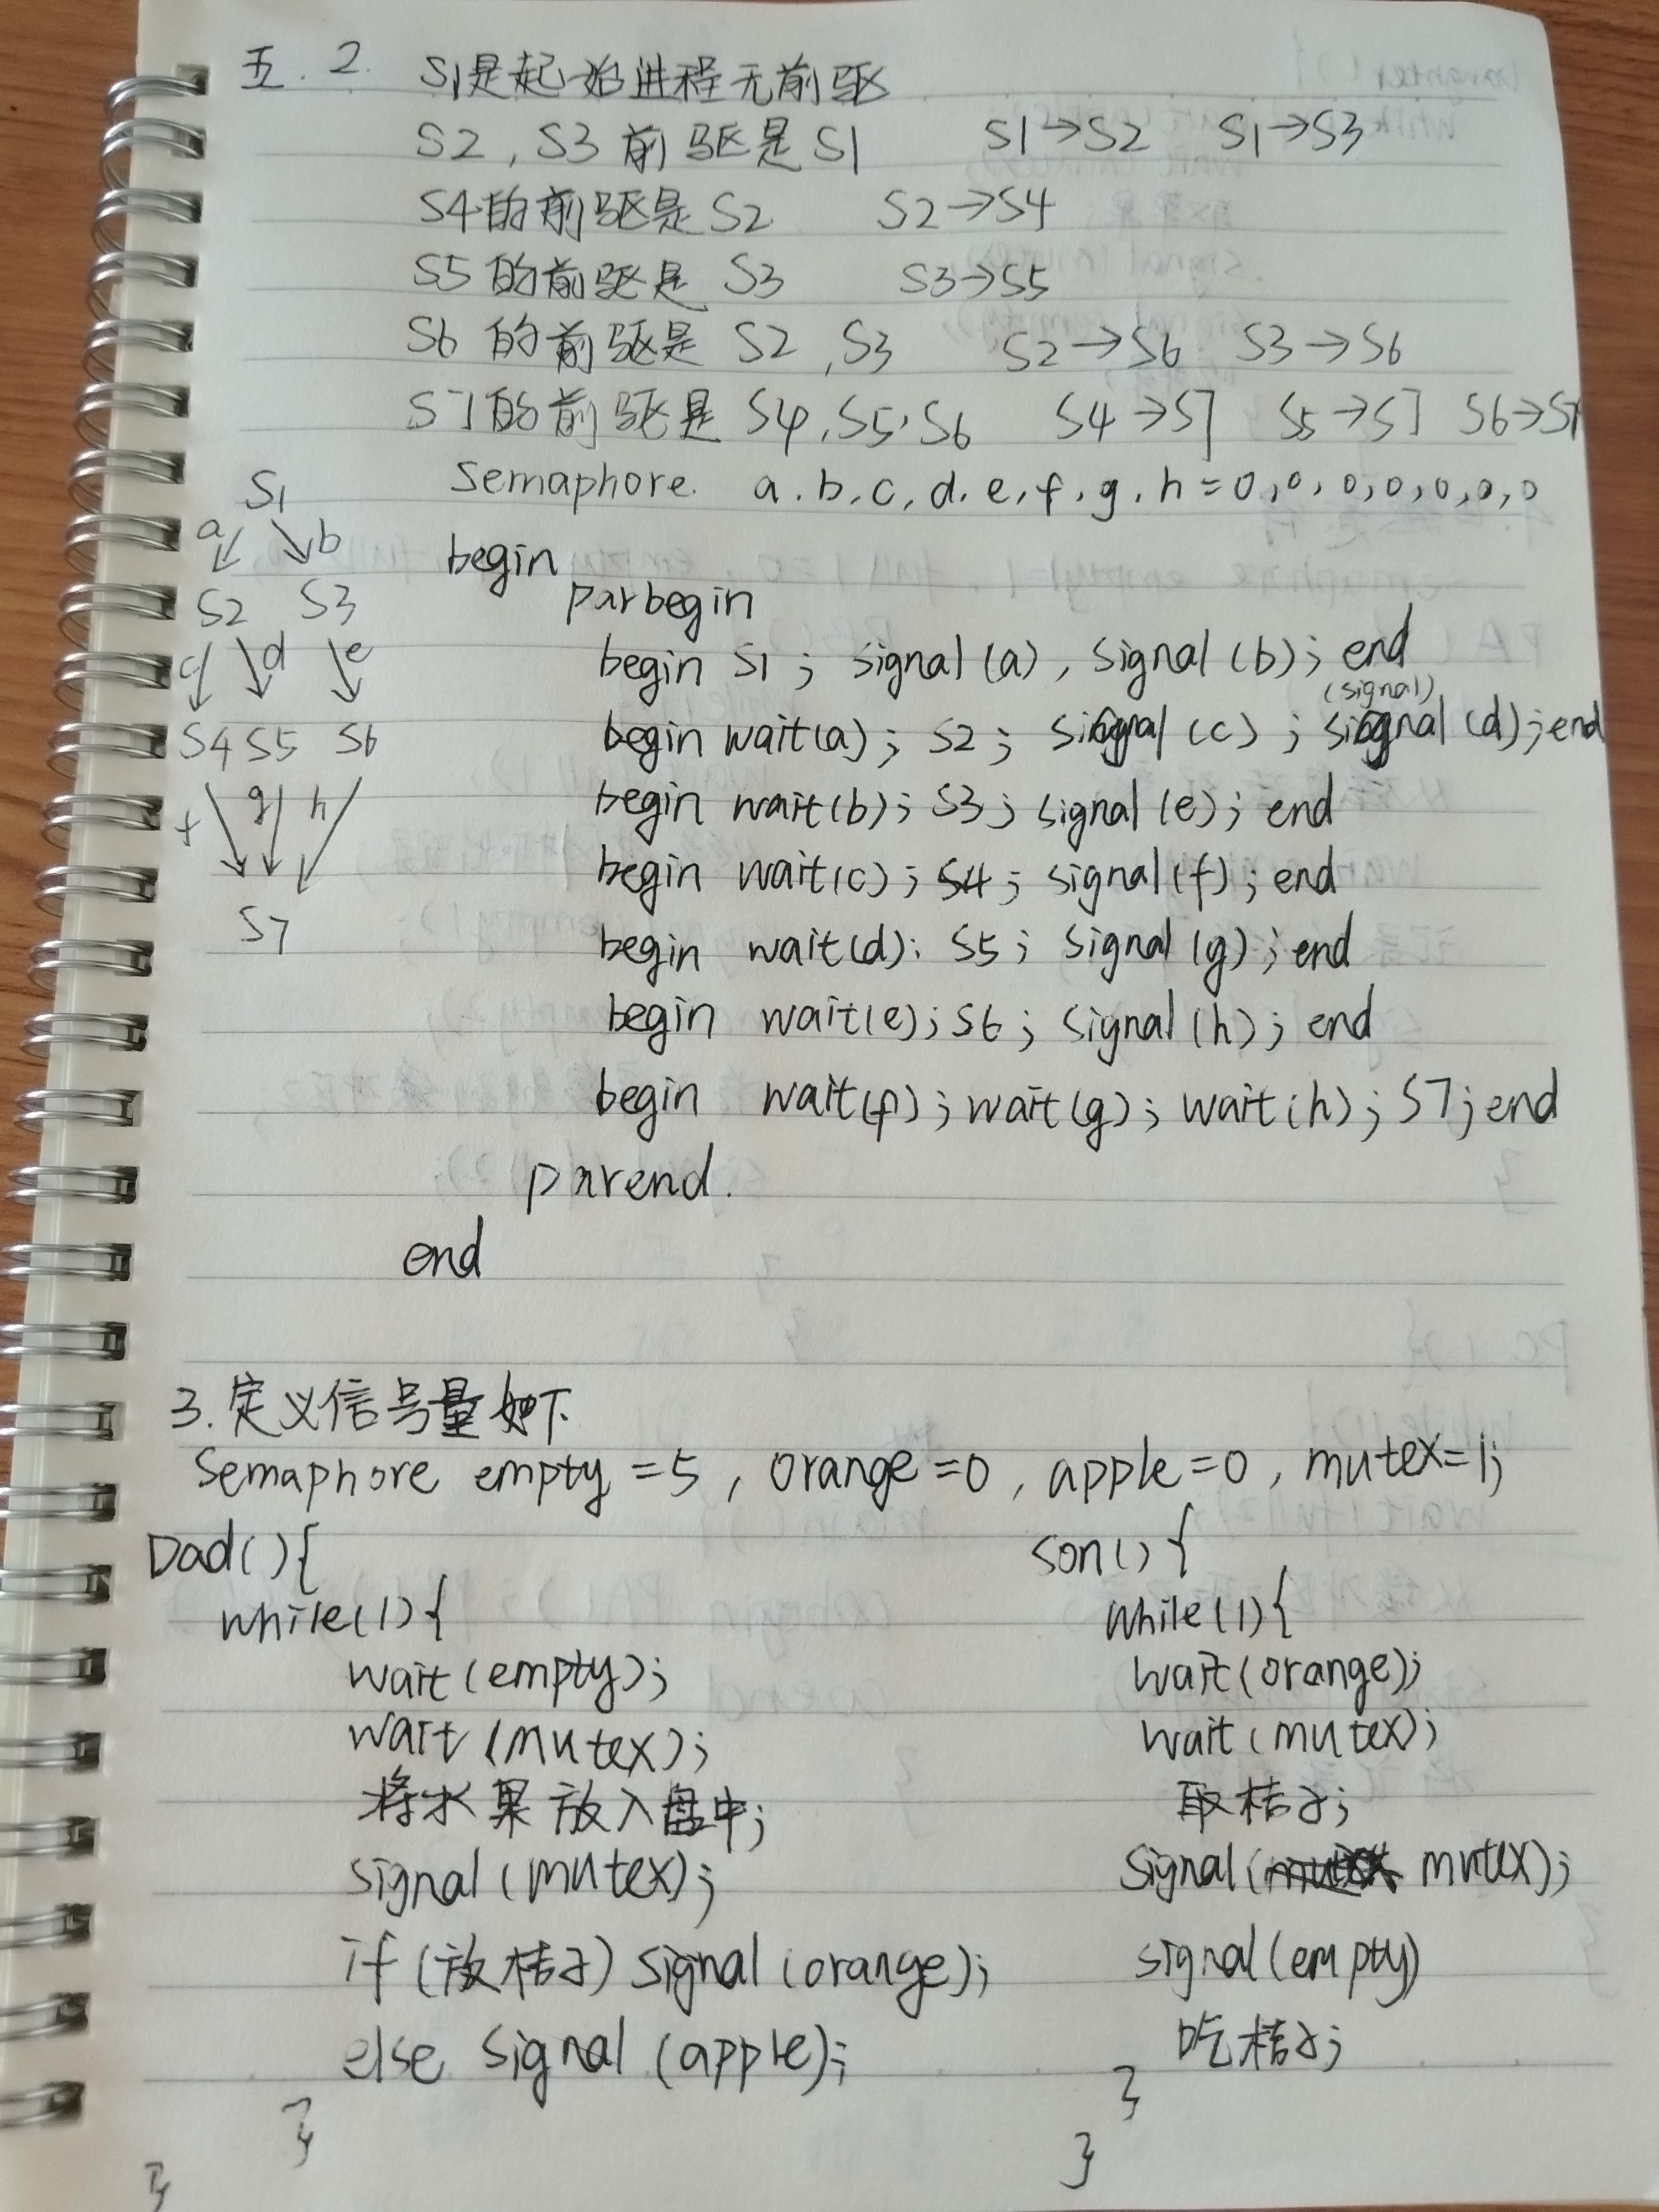 五. 2. S1是起始进程无前驱
S2,S3前驱是S1 S1→S2 S1→S3
S4的前驱是S2 S2→S4
S5的前驱是 S3 S3→S5
S6 的前驱是 S2,S3 S2→S6 S3→S6
S7的前驱是 S4,S5,S6 S4→S7 S5→S7 S6→S7
Semaphore. a.b.c,d.e,f,g,h=0,0,0,0,0,0,0
S1
a b
S2 S3
c d e
S4 S5 S6
f g h
S7
begin
parbegin
begin S1; signal(a), signal(b); end
(signal)
begin wait(a); S2; signal(c); signal(d); end
begin wait(b); S3; signal(e); end
begin wait(c); S4; signal(f); end
begin wait(d): S5; signal(g); end
begin wait(e); S6; signal(h); end
begin wait(f); wait(g); wait(h); S7; end
parend.
end
3.定义信号量如下
Semaphore empty=5, orange=0, apple=0, mutex=1;
Dad(){
while(1){
wait(empty);
wait(mutex);
将水果放入盘中;
signal(mutex);
if(放桔子) signal(orange);
else signal(apple);
}
}
Son(){
while(1){
wait(orange);
wait(mutex);
取桔子;
signal(mutex);
signal(empty)
吃桔子;
}
}